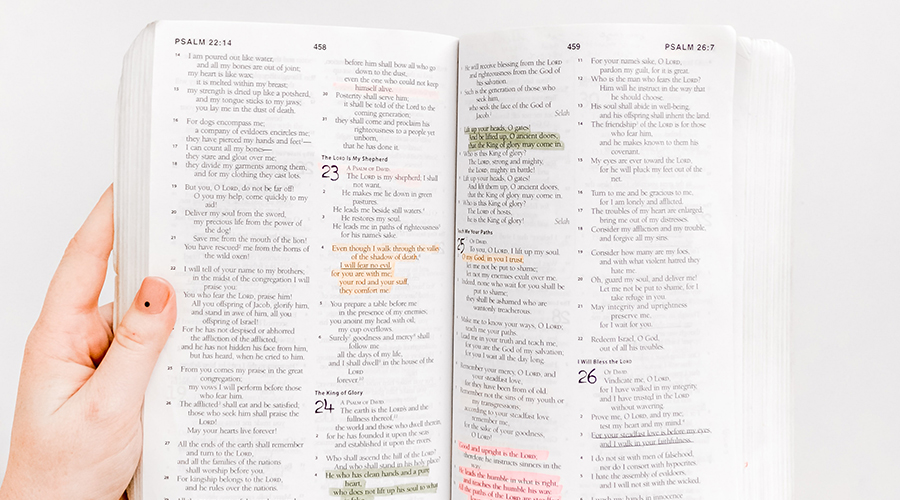 PSALM 22:14
458
14 I am poured out like water,
and all my bones are out of joint;
my heart is like wax;
it is melted within my breast;
15 my strength is dried up like a potsherd,
and my tongue sticks to my jaws;
you lay me in the dust of death.
16 For dogs encompass me;
a company of evildoers encircles me;
they have pierced my hands and feet—
17 I can count all my bones—
they stare and gloat over me;
18 they divide my garments among them,
and for my clothing they cast lots.
19 But you, O LORD, do not be far off!
O you my help, come quickly to my
aid!
20 Deliver my soul from the sword,
my precious life from the power of
the dog!
21 Save me from the mouth of the lion!
You have rescued me from the horns of
the wild oxen!
22 I will tell of your name to my brothers;
in the midst of the congregation I will
praise you:
You who fear the LORD, praise him!
All you offspring of Jacob, glorify him,
and stand in awe of him, all you
offspring of Israel!
For he has not despised or abhorred
the affliction of the afflicted,
and he has not hidden his face from him,
but has heard, when he cried to him.
25 From you comes my praise in the great
congregation;
my vows I will perform before those
who fear him.
26 The afflicted shall eat and be satisfied;
those who seek him shall praise the
LORD!
May your hearts live forever!
27 All the ends of the earth shall remember
and turn to the LORD,
and all the families of the nations
shall worship before you.
28 For kingship belongs to the LORD,
and he rules over the nations.
before him shall bow all who go
down to the dust,
even the one who could not keep
himself alive.
30 Posterity shall serve him;
it shall be told of the Lord to the
coming generation;
31 they shall come and proclaim his
righteousness to a people yet
unborn,
that he has done it.
The LORD Is My Shepherd
23 A PSALM OF DAVID.
The LORD is my shepherd, I shall
not want.
2 He makes me lie down in green
pastures.
He leads me beside still waters.
3 He restores my soul.
He leads me in paths of righteousness
for his name's sake.
4 Even though I walk through the valley
of the shadow of death,
I will fear no evil,
for you are with me;
your rod and your staff,
they comfort me.
5 You prepare a table before me
in the presence of my enemies;
you anoint my head with oil;
my cup overflows.
6 Surely goodness and mercy shall
follow me
all the days of my life,
and I shall dwell in the house of the
LORD
forever.
The King of Glory
24 A PSALM OF DAVID.
The earth is the LORD's and the
fullness thereof,
the world and those who dwell therein,
2 for he has founded it upon the seas
and established it upon the rivers.
3 Who shall ascend the hill of the LORD?
And who shall stand in his holy place?
4 He who has clean hands and a pure
heart,
who does not lift up his soul to what
459
PSALM 26:7
He will receive blessing from the LORD
and righteousness from the God of
his salvation.
Such is the generation of those who
seek him,
who seek the face of the God of
Jacob. Selah
Lift up your heads, O gates!
And be lifted up, O ancient doors,
that the King of glory may come in.
Who is this King of glory?
The LORD, strong and mighty,
the LORD, mighty in battle!
Lift up your heads, O gates!
And lift them up, O ancient doors,
that the King of glory may come in.
Who is this King of glory?
The LORD of hosts,
he is the King of glory! Selah
Me Your Paths
OF DAVID.
To you, O LORD, I lift up my soul.
O my God, in you I trust;
let me not be put to shame;
let not my enemies exult over me.
Indeed, none who wait for you shall be
put to shame;
they shall be ashamed who are
wantonly treacherous.
Make me to know your ways, O LORD;
teach me your paths.
Lead me in your truth and teach me,
for you are the God of my salvation;
for you I wait all the day long.
Remember your mercy, O LORD, and
your steadfast love,
for they have been from of old.
Remember not the sins of my youth or
my transgressions;
according to your steadfast love
remember me,
for the sake of your goodness,
O LORD!
Good and upright is the LORD;
therefore he instructs sinners in the
way.
He leads the humble in what is right,
and teaches the humble his way.
All the paths of the LORD are
11 For your name's sake, O LORD,
pardon my guilt, for it is great.
12 Who is the man who fears the LORD?
Him will he instruct in the way that
he should choose.
13 His soul shall abide in well-being,
and his offspring shall inherit the land.
14 The friendship of the LORD is for those
who fear him,
and he makes known to them his
covenant.
15 My eyes are ever toward the LORD,
for he will pluck my feet out of the
net.
16 Turn to me and be gracious to me,
for I am lonely and afflicted.
17 The troubles of my heart are enlarged;
bring me out of my distresses.
18 Consider my affliction and my trouble,
and forgive all my sins.
19 Consider how many are my foes,
and with what violent hatred they
hate me.
20 Oh, guard my soul, and deliver me!
Let me not be put to shame, for I
take refuge in you.
21 May integrity and uprightness
preserve me,
for I wait for you.
22 Redeem Israel, O God,
out of all his troubles.
I Will Bless the LORD
26 OF DAVID.
Vindicate me, O LORD,
for I have walked in my integrity,
and I have trusted in the LORD
without wavering.
2 Prove me, O LORD, and try me;
test my heart and my mind.
3 For your steadfast love is before my eyes,
and I walk in your faithfulness.
4 I do not sit with men of falsehood,
nor do I consort with hypocrites.
5 I hate the assembly of evildoers,
and I will not sit with the wicked.